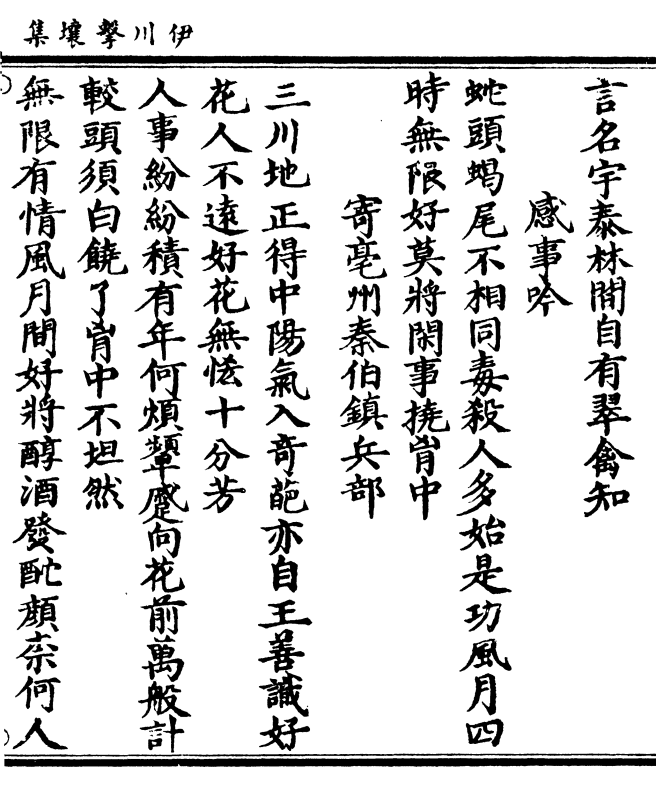 伊川擊壤集
言名宇泰林間自有翠禽知
感事吟
蛇頭蝎尾不相同毒殺人多始是功風月四
時無限好莫將閑事撓胷中
寄亳州秦伯鎮兵部
三川地正得中陽氣入奇葩亦自王善識好
花人不遠好花無恡十分芳
人事紛紛積有年何煩顰蹙向花前萬般計
較頭須白饒了胷中不坦然
無限有情風月間好將醇酒發酡顏柰何人